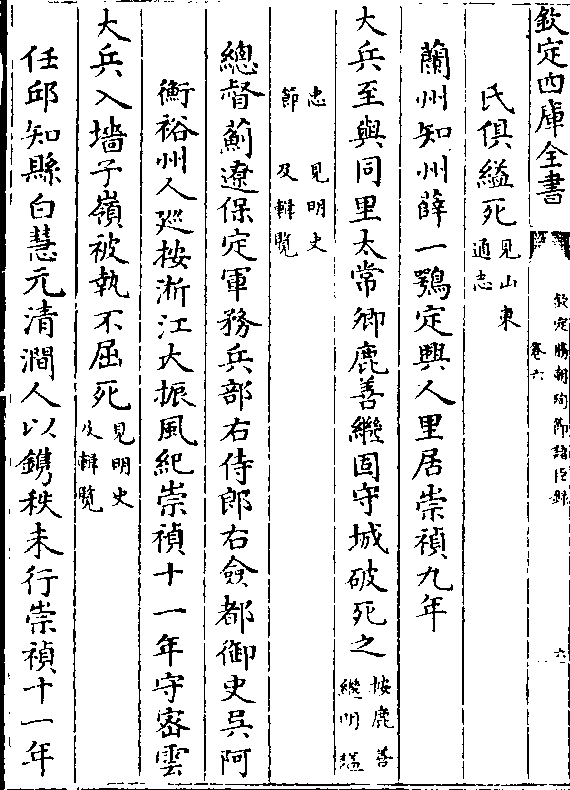 欽定四庫全書
欽定勝朝殉節諸臣錄
卷六
六
氏俱縊死見山東通志
蘭州知州薛一鶚定興人里居崇禎九年
大兵至與同里太常卿鹿善繼固守城破死之按鹿善繼明諡
忠節見明史及輯覽
總督薊遼保定軍務兵部右侍郎右僉都御史吳阿
衡裕州人廵按浙江大振風紀崇禎十一年守密雲
大兵入墻子嶺被執不屈死見明史及輯覽
任邱知縣白慧元清澗人以鐫秩未行崇禎十一年